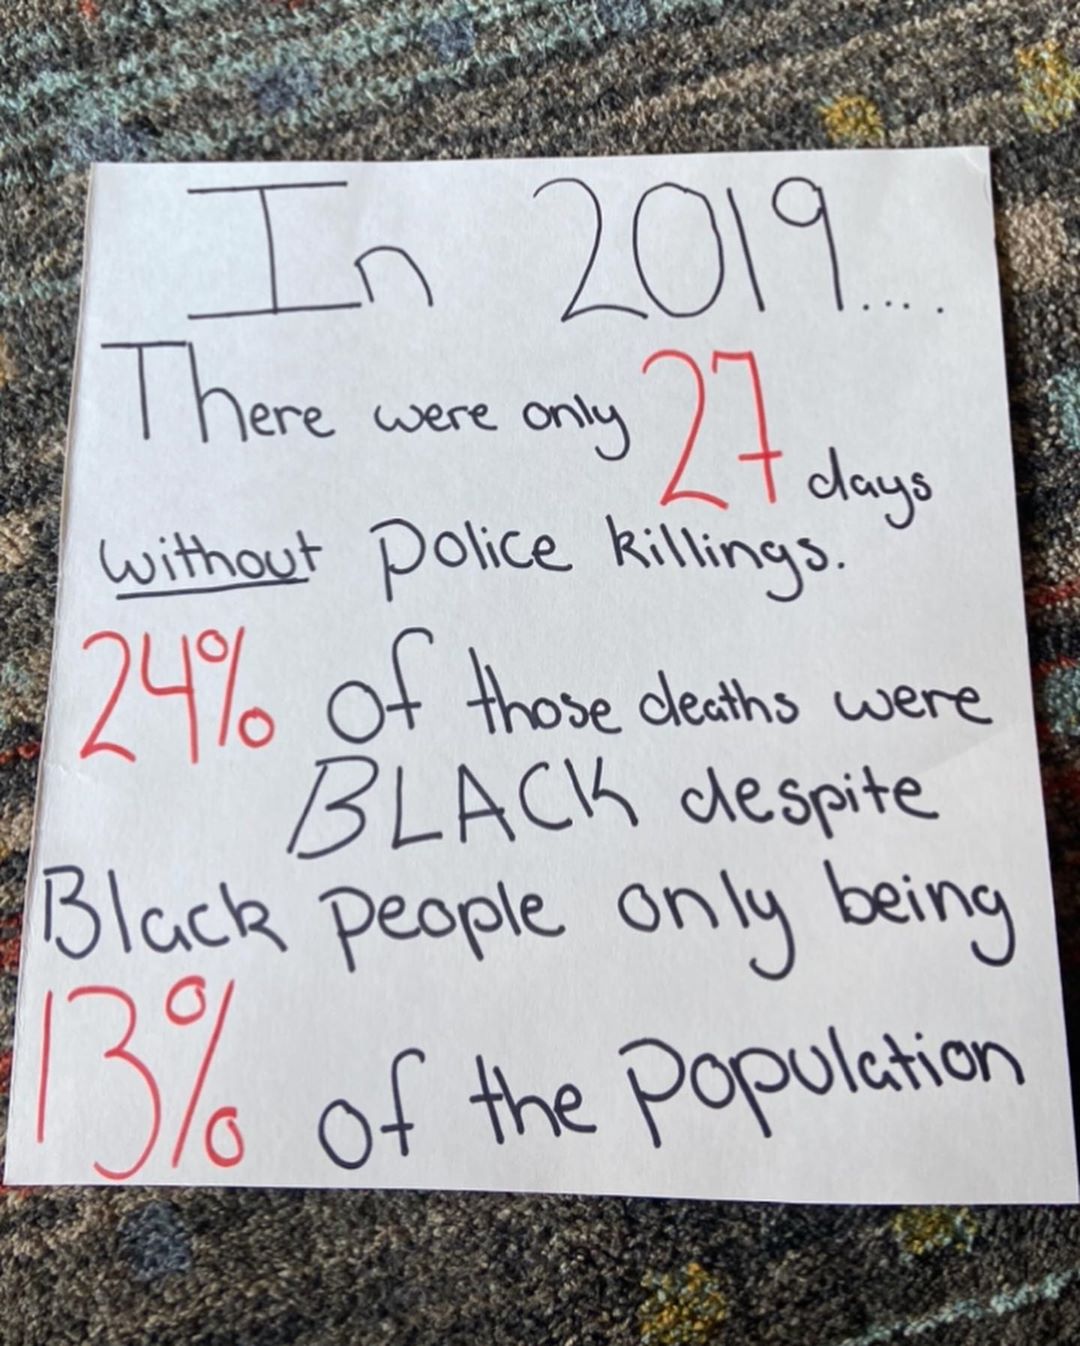 In 2019....
There were only 27 days
without police killings.
24% of those deaths were
BLACK despite
Black people only being
13% of the population